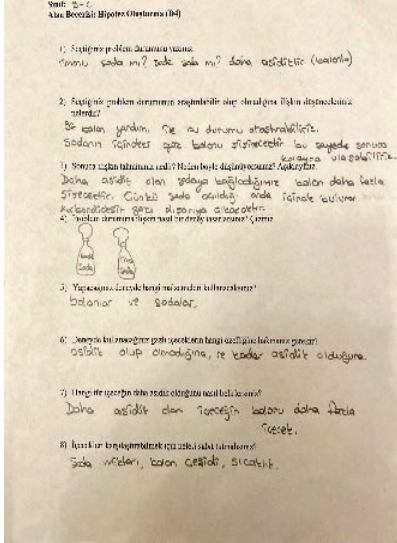 Sınıf: 8-C
Alan Becerisi: Hipotez Oluşturma (D4)
1) Seçtiğiniz problem durumunu yazınız.
limonlu soda mı? sade soda mı? daha asidiktir (balonla)
2) Seçtiğiniz problem durumunun araştırılabilir olup olmadığına ilişkin düşünceleriniz
nelerdir?
Bir balon yardımı ile bu durumu araştırabiliriz.
Sodanın içindeki gaz balonu şişirecektir bu sayede sonuca
kolayca ulaşabiliriz.
3) Sonuca ilişkin tahmininiz nedir? Neden böyle düşünüyorsunuz? Açıklayınız.
Daha asidik olan sodaya bağladığımız balon daha fazla
şişecektir. Çünkü soda açıldığı anda içinde bulunan
karbondioksit gazı dışarıya çıkacaktır.
4) Problem durumuna ilişkin nasıl bir deney tasarlarsınız? Çiziniz.
Soda
Soda
5) Yapacağınız deneyde hangi malzemeleri kullanacaksınız?
balonlar ve sodalar.
6) Deneyde kullanacağınız gazlı içeceklerin hangi özelliğine bakmanız gerekir?
asidik olup olmadığına, ne kadar asidik olduğuna.
7) Hangi tür içeceğin daha asidik olduğunu nasıl belirlersiniz?
Daha asidik olan içeceğin balonu daha fazla
şişecek.
8) İçecekleri karşılaştırabilmek için neleri sabit tutmalısınız?
Soda miktarı, balon çeşidi, sıcaklık.